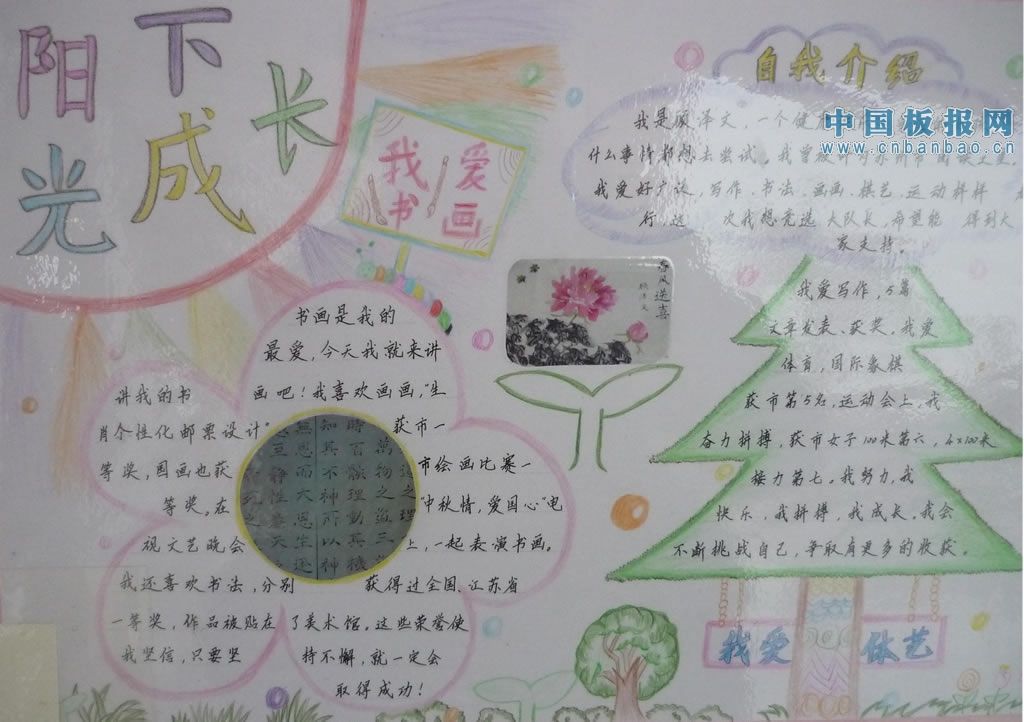 阳光下成长
我爱
书画
自我介绍
中国板报网
www.cnbanbao.cn
我是顾泽文,一个健
什么事情都想去尝试。我曾被评为苏州市
我爱好广泛,写作、书法、画画、棋艺、运动样样
行,这 次我想竞选 大队长,希望能 得到大
家支持。
春风送喜
书画是我的
最爱,今天我就来讲
讲我的书 画吧!我喜欢画画,“生
肖个性化邮票设计” 获市一
等奖,国画也获 市绘画比赛一
等奖。在 “中秋情,爱国心”电
视文艺晚会 上,一起表演书画。
我还喜欢书法,分别 获得过全国、江苏省
一等奖,作品被贴在 了美术馆。这些荣誉使
我坚信,只要坚 持不懈,就一定会
取得成功!
我爱写作,5篇
文章发表、获奖。我爱
体育,国际象棋
获市第5名,运动会上,我
奋力拼搏,获市女子100米第六,4×100米
接力第七。我努力,我
快乐,我拼搏,我成长。我会
不断挑战自己,争取有更多的收获。
我爱 体艺